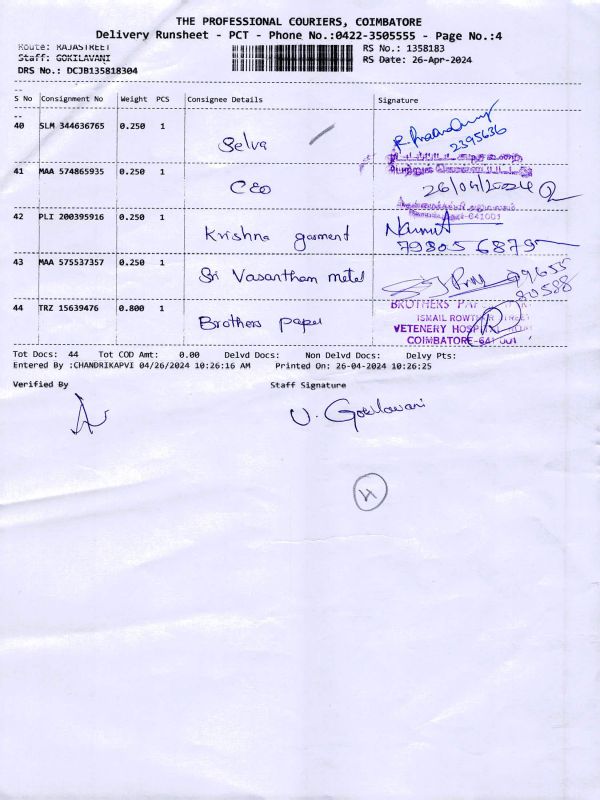 THE PROFESSIONAL COURIERS, COIMBATORE
Delivery Runsheet - PCT - Phone No.:0422-3505555 - Page No.:4
Route: RAJASTREET
RS No.: 1358183
Staff: GOKILAVANI
RS Date: 26-Apr-2024
DRS No.: DCJB135818304
S No Consignment No Weight PCS Consignee Details Signature
40 SLM 344636765 0.250 1 Selva
2395636
41 MAA 574865935 0.250 1 CEO
26/04/2024
641001
42 PLI 200395916 0.250 1 Krishna garment
79805 6879
43 MAA 575537357 0.250 1 Sri Vasantham metal
79655
80588
44 TRZ 15639476 0.800 1 Brothers paper
BROTHERS
ISMAIL ROWTHER STREET
VETENERY HOSPITAL
COIMBATORE-641 001
Tot Docs: 44 Tot COD Amt: 0.00 Delvd Docs: Non Delvd Docs: Delvy Pts:
Entered By :CHANDRIKAPVI 04/26/2024 10:26:16 AM Printed On: 26-04-2024 10:26:25
Verified By Staff Signature
V. Gokilavani
4